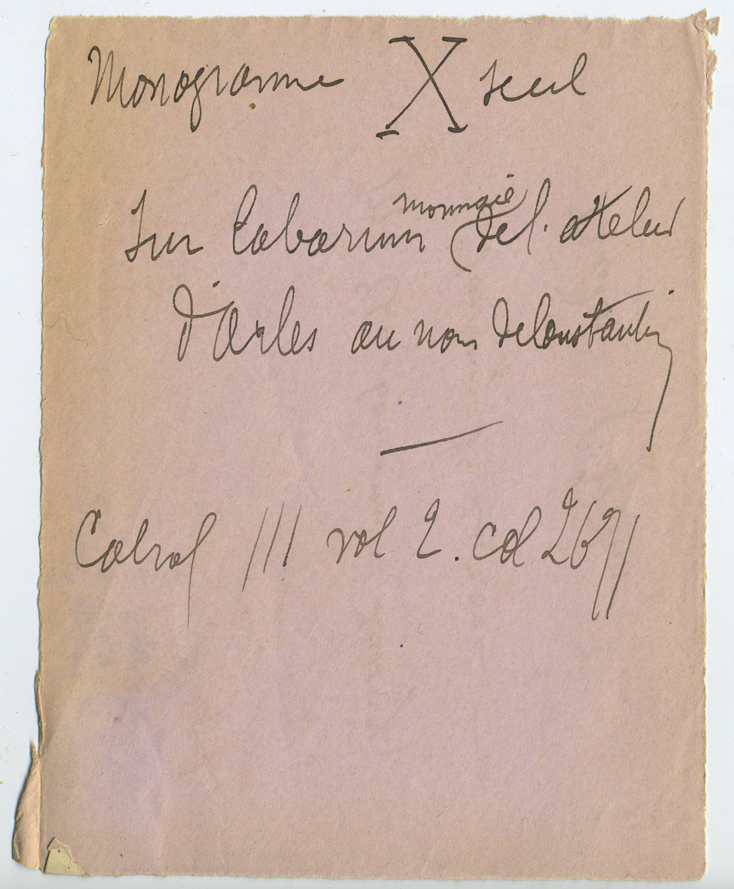 Monogramme X seul
sur Labarum (monnaie de l'atelier
d'Arles au nom de Constantin
Cabrol III vol 2. col 2691